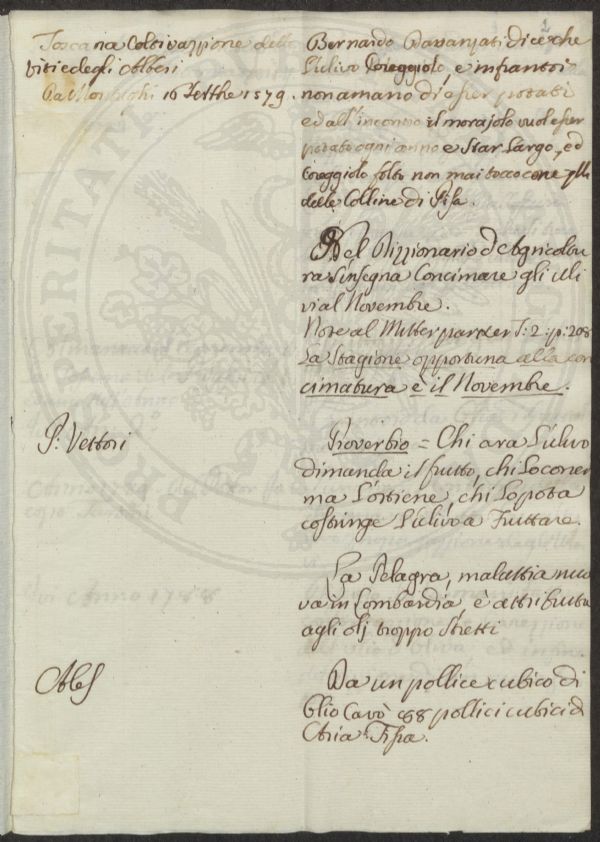 Toscana Coltivazione delle
Viti e degli Alberi
Da Mosciaghi 16 Settbre 1579.
Bernardo Davanzati dice che
l'ulivo Coreggiolo, e infrantoi
non amano di esser potati
ed all'incontro il morajolo vuol esser
potato ogni anno e star largo, ed
Coreggiolo folto non mai tocco come quelli
delle Colline di Pisa.
Nel Dizzionario d'Agricoltu
ra s'insegna Concimare gli uli
vi al Novembre.
Note al Mitterpacher T: 2: p: 208
La Stagione opportuna alla con
cimatura è il Novembre.
P: Vettori
Proverbio = Chi ara l'ulivo
dimanda il frutto, chi lo conci
ma l'ottiene, chi lo pota
costringe l'ulivo a Fruttare.
La Pelagra, malattia nuo
va in Lombardia, è attribuita
agli olj troppo stretti
Ales
Da un pollice cubico di
Olio Cavò 88 pollici cubici d
Aria Fissa.